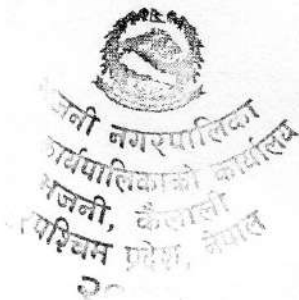 भजनी नगरपालिका
कार्यपालिकाको कार्यालय
भजनी, कैलाली
प्रदेश, नेपाल